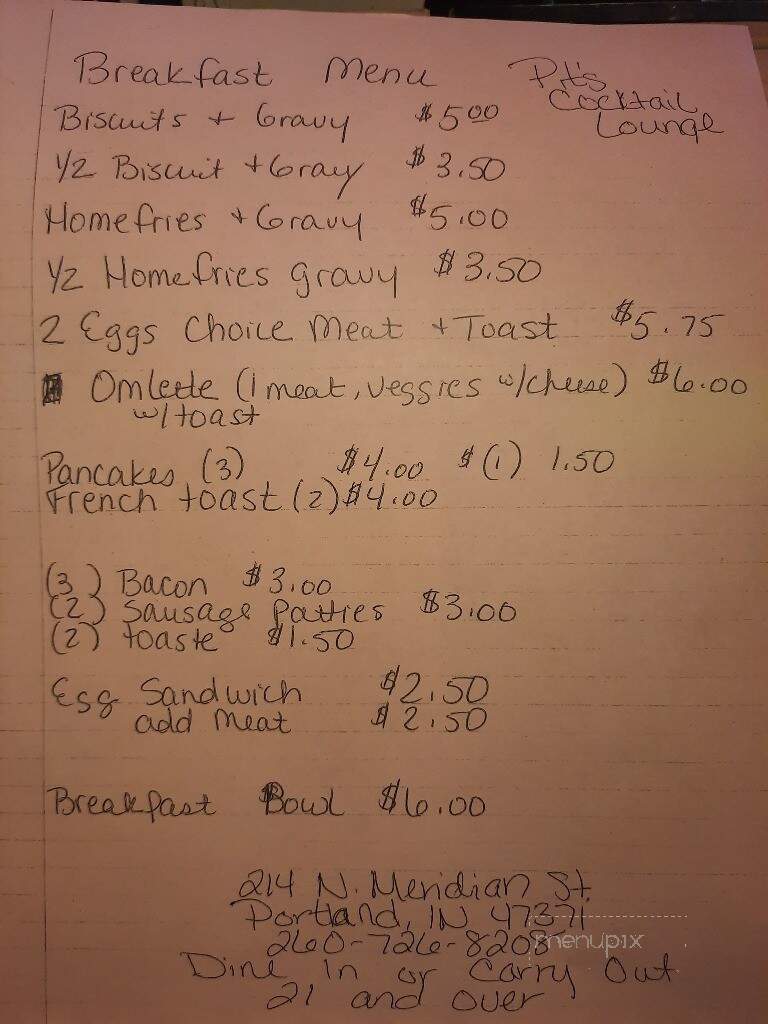 Breakfast Menu
P.J.'s
Cocktail
Lounge
Biscuits + Gravy $5.00
1/2 Biscuit + Gray $3.50
Homefries + Gravy $5.00
1/2 Homefries gravy $3.50
2 Eggs Choice Meat + Toast $5.75
Omlette (1 meat, veggies w/cheese) $6.00
w/toast
Pancakes (3) $4.00 $(1) 1.50
French toast (2) $4.00
(3) Bacon $3.00
(2) Sausage Patties $3.00
(2) toaste $1.50
Egg Sandwich $2.50
add meat $2.50
Breakfast Bowl $6.00
214 N. Meridian St.
Portland, IN 47371
260-726-8208
menupix
Dine In or Carry Out
21 and over